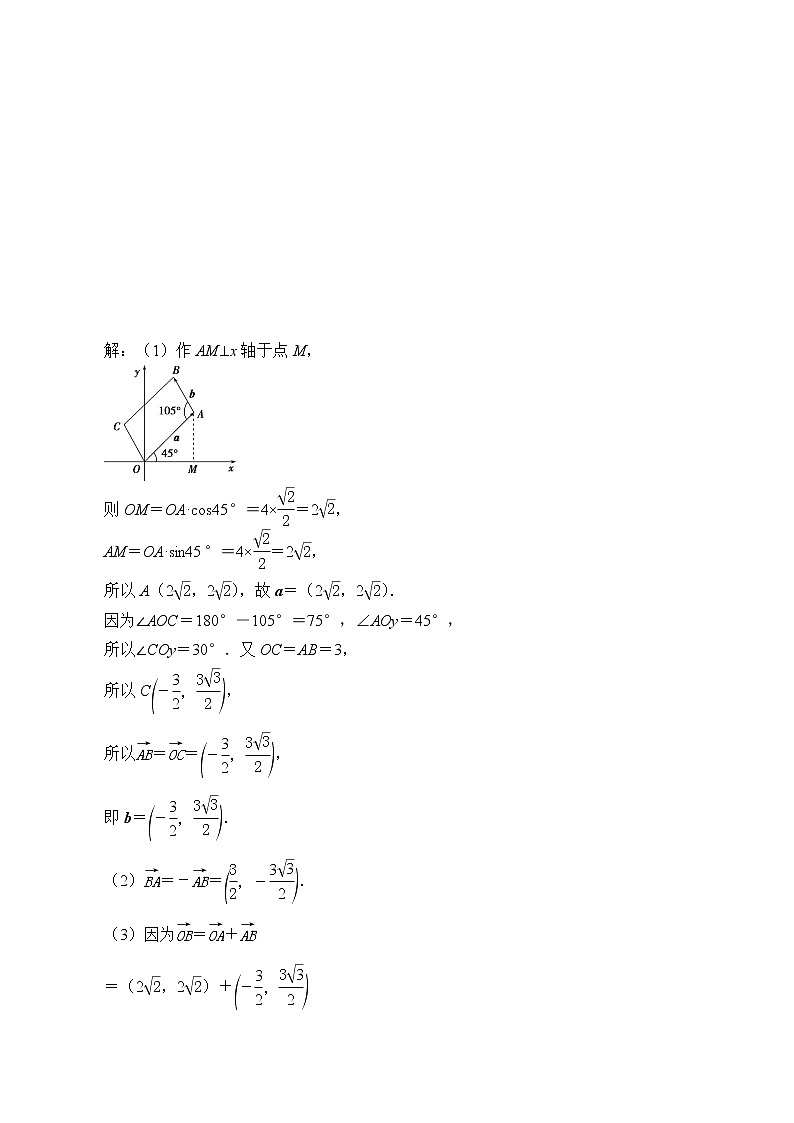 解：（1）作 AM⊥x 轴于点 M，
y
B
b
105°
A
C
a
45°
O
M
x
则 OM＝OA·cos45°＝4×√2/2＝2√2，
AM＝OA·sin45°＝4×√2/2＝2√2，
所以 A（2√2，2√2），故 a＝（2√2，2√2）．
因为∠AOC＝180°－105°＝75°，∠AOy＝45°，
所以∠COy＝30°．又 OC＝AB＝3，
所以 C(－3/2，3√3/2)，
所以AB→＝OC→＝(－3/2，3√3/2)，
即 b＝(－3/2，3√3/2)．
（2）BA→＝－AB→＝(3/2，－3√3/2)．
（3）因为OB→＝OA→＋AB→
＝（2√2，2√2）＋(－3/2，3√3/2)